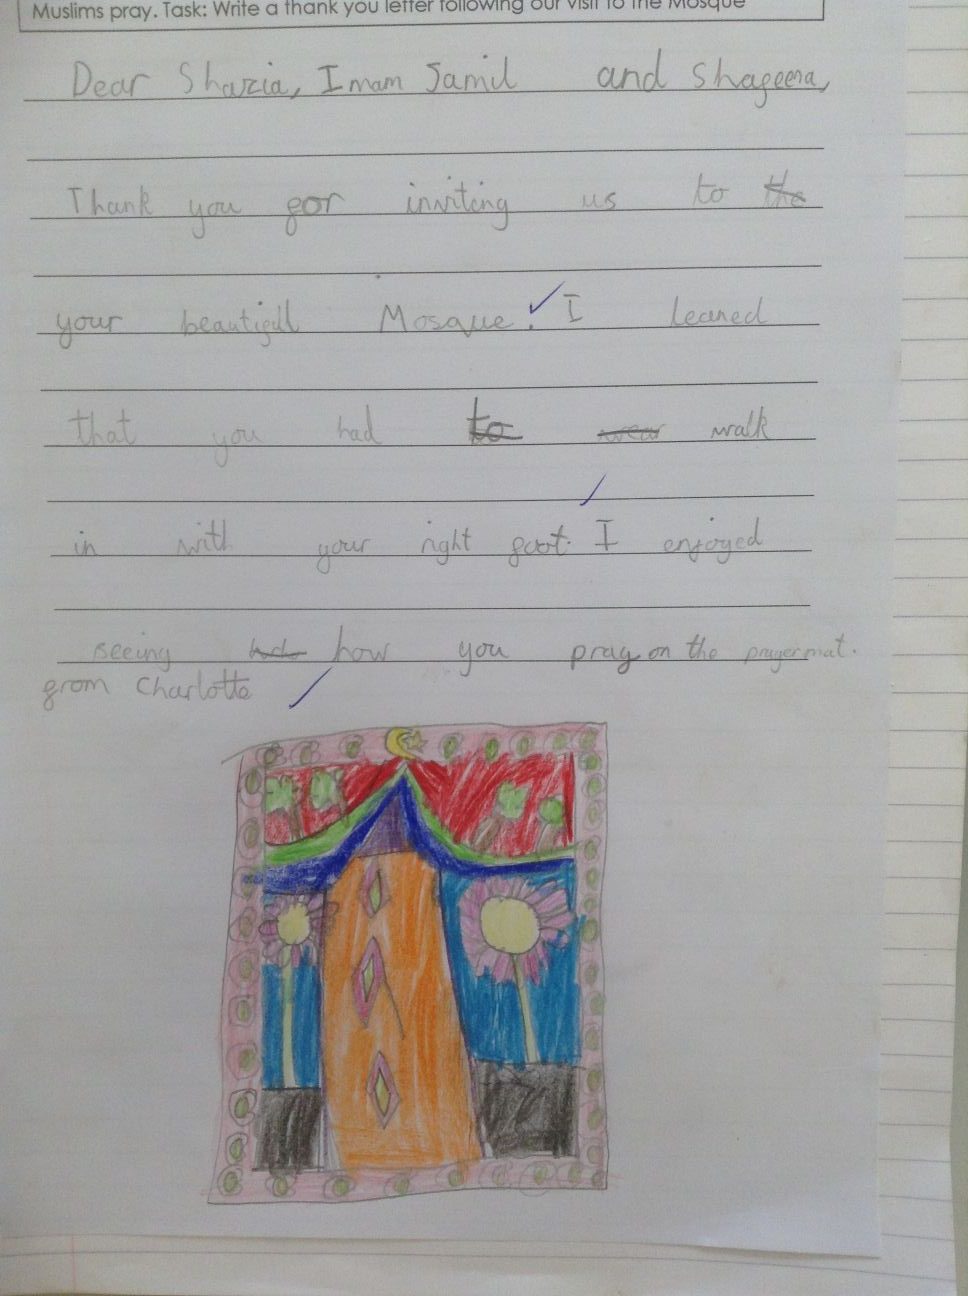 Muslims pray. Task: Write a thank you letter following our visit to the Mosque
Dear Shazia, Imam Jamil and Shageena,
Thank you for inviting us to the
your beautifull Mosque. I leaned
that you had to wear walk
in with your right foot. I enjoyed
seeing how you pray on the prayer mat.
from Charlotte